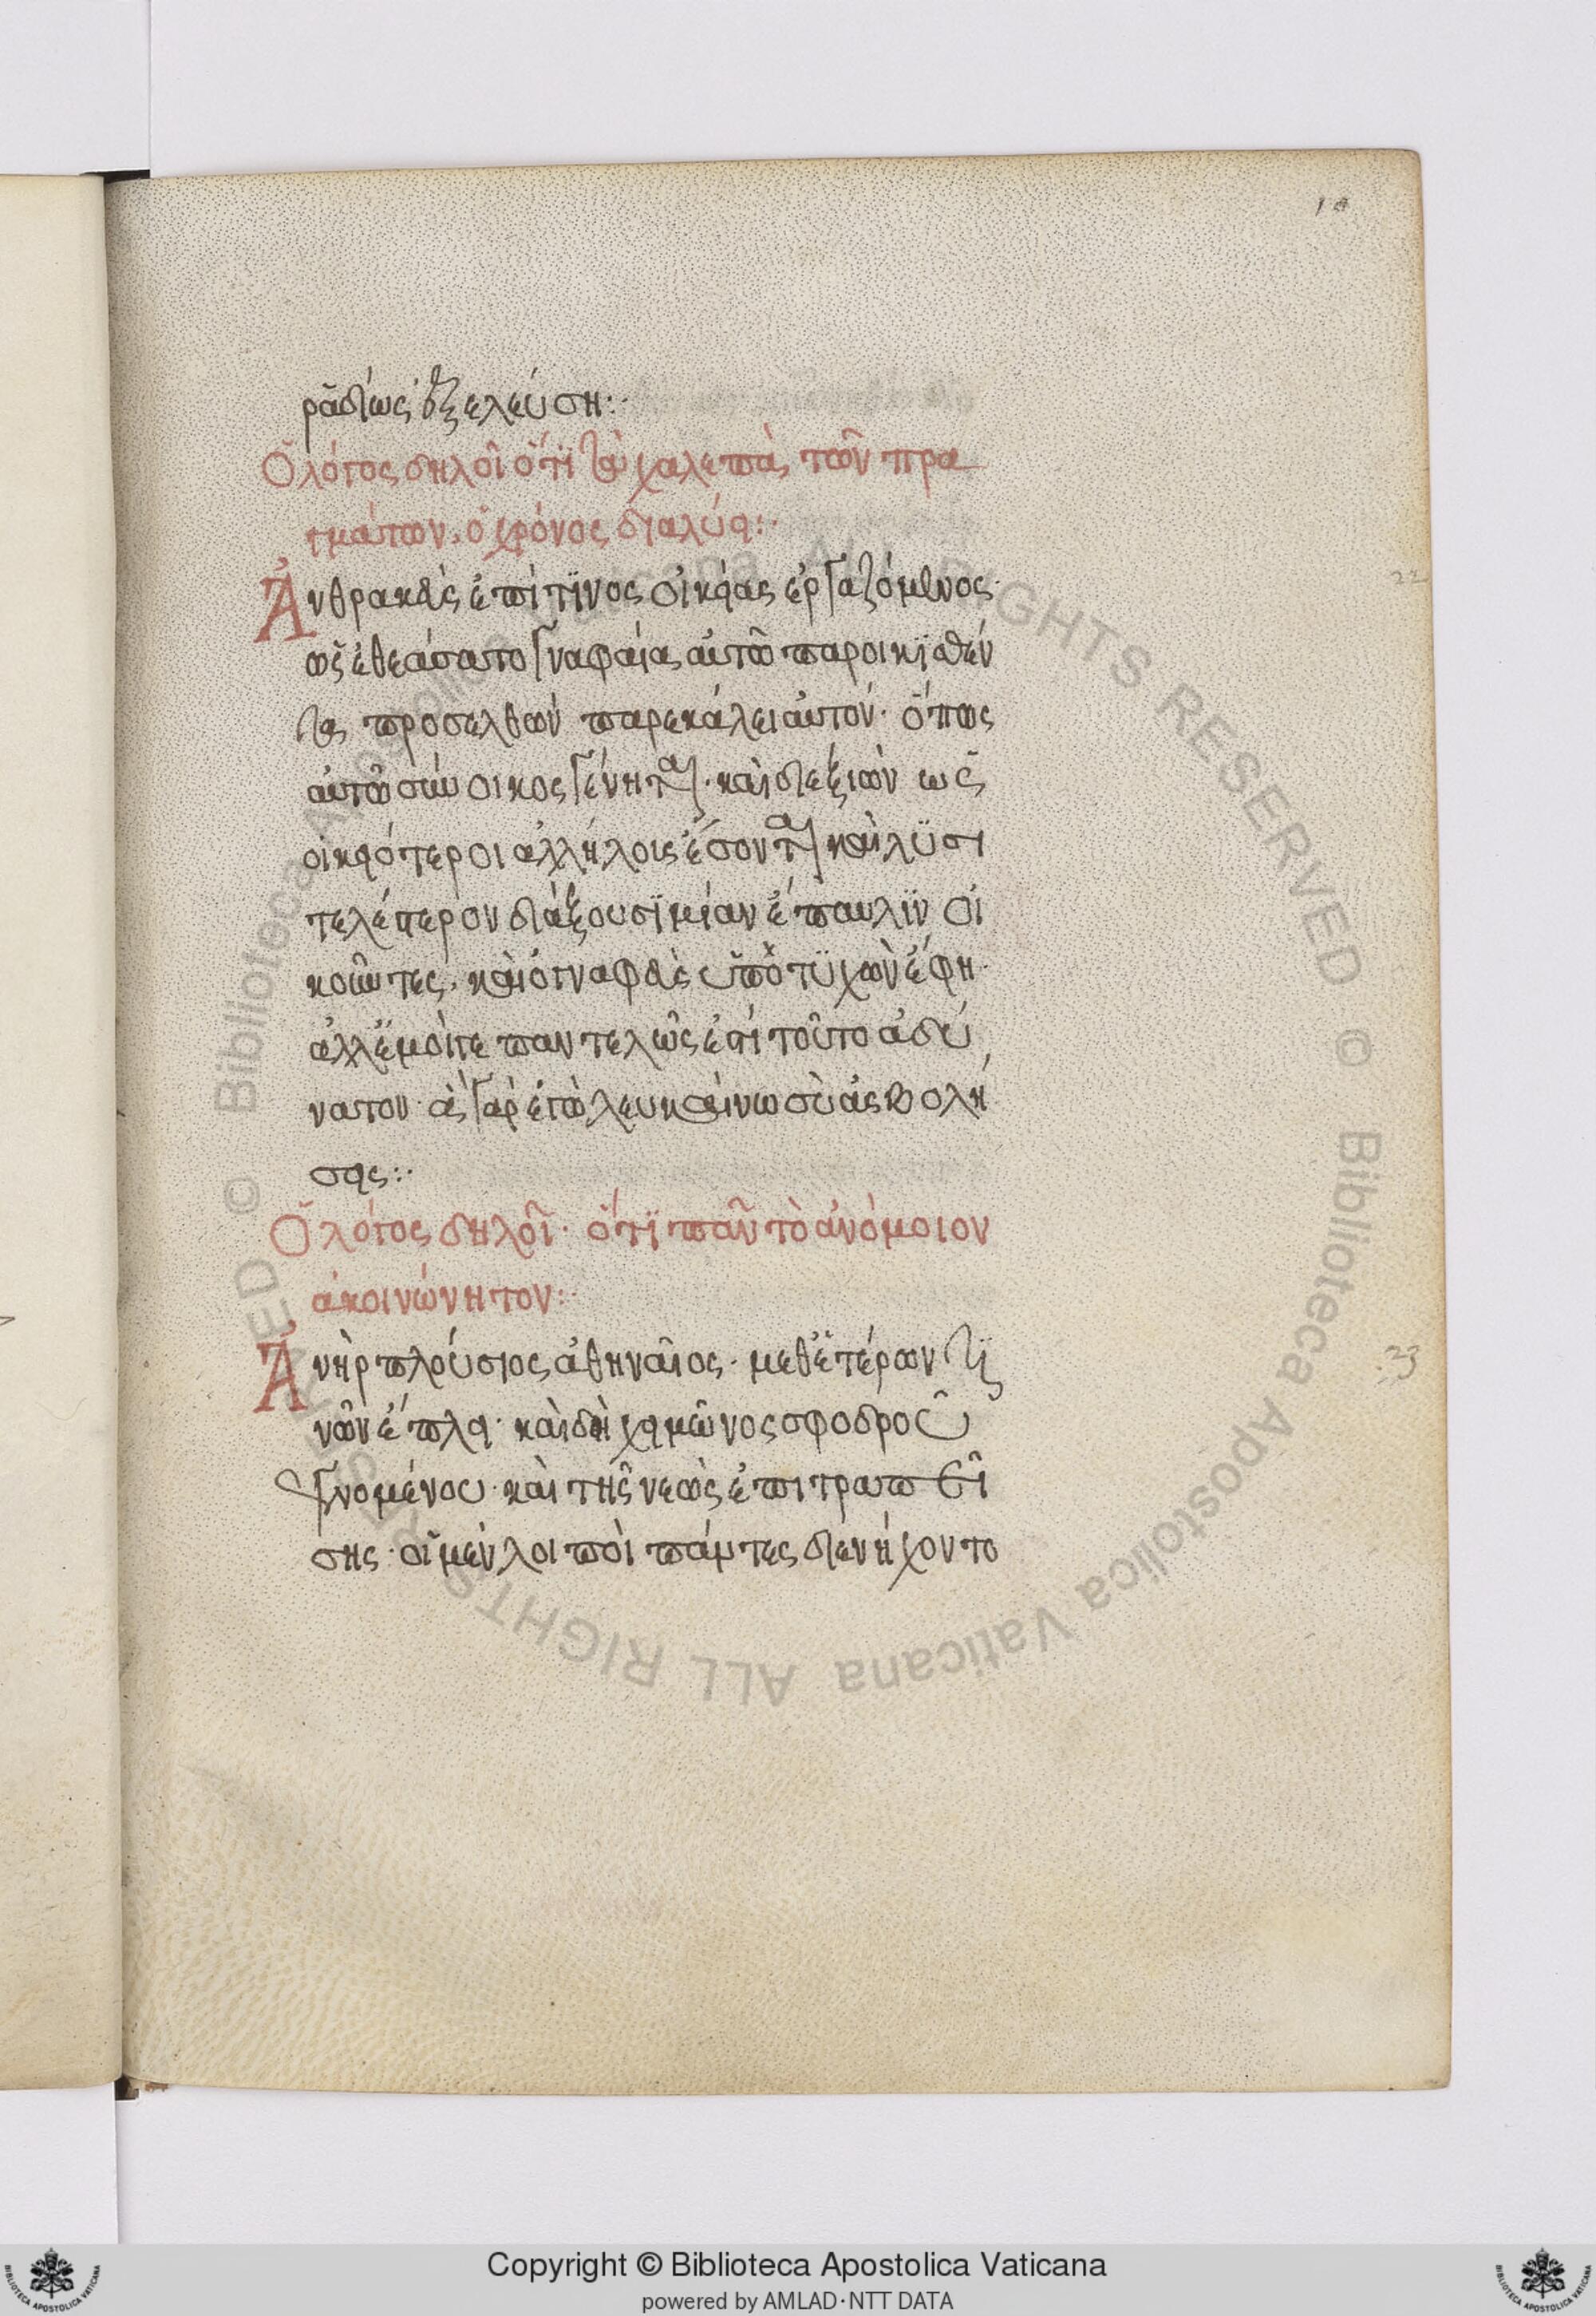 10
ῥαδίως ἐξελεύση:·
Ὁ λόγος δηλοῖ ὅτι τὰ χαλεπὰ, τῶν πρα
γμάτων, ὁ χρόνος διαλύει:·
22
Ἀνθρακεὺς ἐπί τινος οἰκείας ἐργαζόμενος·
ὡς ἐθεάσατο γναφαία αὐτῶ παροικισθέν
τα, προσελθὼν παρεκάλει αὐτόν· ὅπως
αὐτῶ σύνοικος γένηται· καὶ διεξιὼν ὡς
οἰκειότεροι ἀλλήλοις ἔσονται καὶ λυσι
τελέστερον διάξουσι μίαν ἔπαυλιν οἰ
κοῦντες. καὶ ὁ γναφεὺς ὑποτυχὼν ἔφη·
ἀλλ' ἔμοιγε παντελῶς ἐστὶ τοῦτο ἀδύ
νατον· ἃ γὰρ ἐγὼ λευκαίνω σὺ ἀσβολή
σεις:·
Ὁ λόγος δηλοῖ· ὅτι πᾶν τὸ ἀνόμοιον
ἀκοινώνητον:·
23
Ἀνὴρ πλούσιος ἀθηναῖος· μεθ' ἑτέρων τι
νῶν ἔπλει· καὶ δὴ χειμῶνος σφοδροῦ
γενομένου· καὶ τῆς νεὼς ἐπιτραπεί
σης· οἱ μὲν λοιποὶ πάντες διενήχοντο
© Biblioteca Apostolica Vaticana ALL RIGHTS RESERVED © Biblioteca Apostolica Vaticana ALL RIGHTS RESERVED
Copyright © Biblioteca Apostolica Vaticana
powered by AMLAD·NTT DATA
BIBLIOTECA APOSTOLICA VATICANA
BIBLIOTECA APOSTOLICA VATICANA